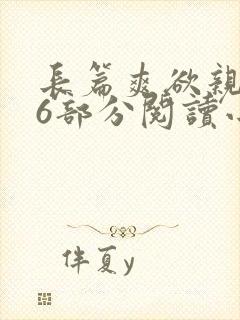 長篇爽欲親
6部分閱讀小
伴夏y